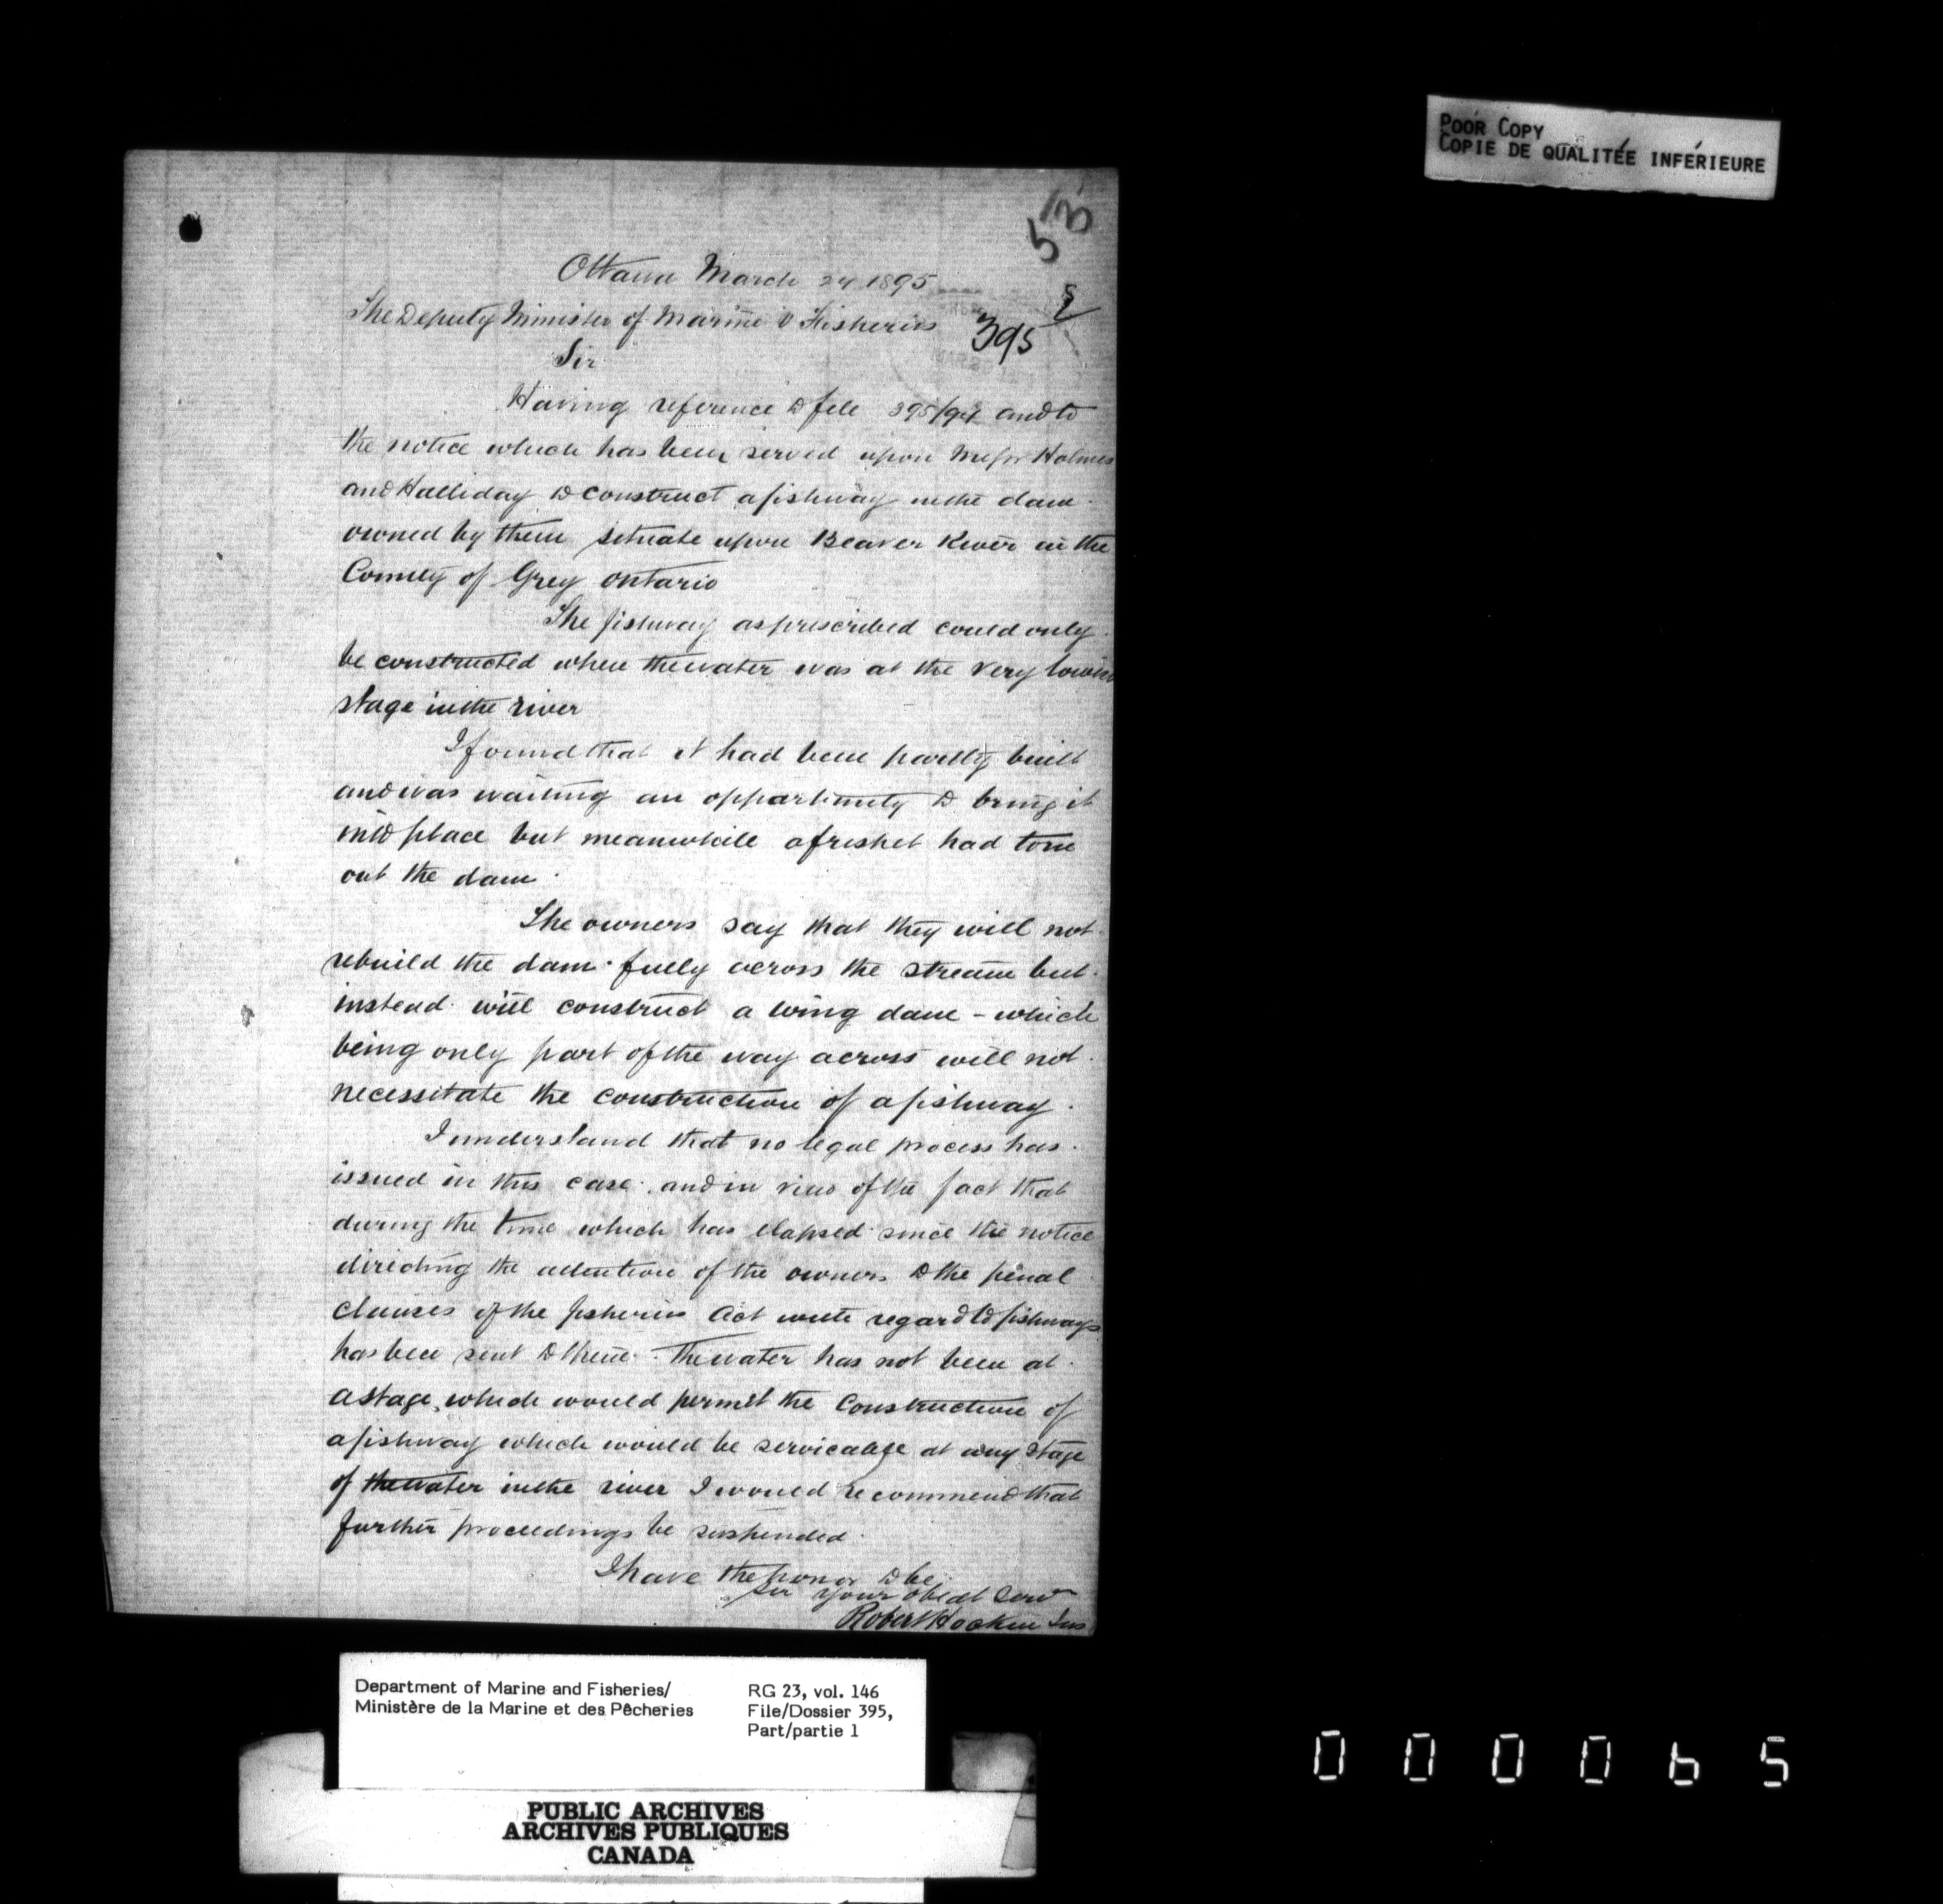 POOR COPY
COPIE DE QUALITÉE INFÉRIEURE
53
Ottawa March 24 1895
The Deputy Minister of Marine & Fisheries
395
Sir
Having reference to file 395/94 and to
the notice which has been served upon Messrs Holmes
and Halliday to construct a fishway in the dam
owned by them situate upon Beaver River in the
County of Grey Ontario
The fishway as prescribed could only
be constructed when the water was at the very lowest
stage in the river
I found that it had been partly built
and was waiting an opportunity to bring it
into place but meanwhile a freshet had torn
out the dam.
The owners say that they will not
rebuild the dam fully across the stream but
instead will construct a wing dam - which
being only part of the way across will not
necessitate the construction of a fishway.
I understand that no legal process has
issued in this case. and in view of the fact that
during the time which has elapsed since the notice
directing the attention of the owners to the penal
clauses of the fisheries Act with regard to fishways
has been sent to them. The water has not been at
a stage which would permit the construction of
a fishway which would be servicable at any stage
of the water in the river I would recommend that
further proceedings be suspended.
I have the honor to be
Sir your obedt Serv
Robert Hockin Ins
Department of Marine and Fisheries/
Ministère de la Marine et des Pêcheries
RG 23, vol. 146
File/Dossier 395,
Part/partie 1
PUBLIC ARCHIVES
ARCHIVES PUBLIQUES
CANADA
000065